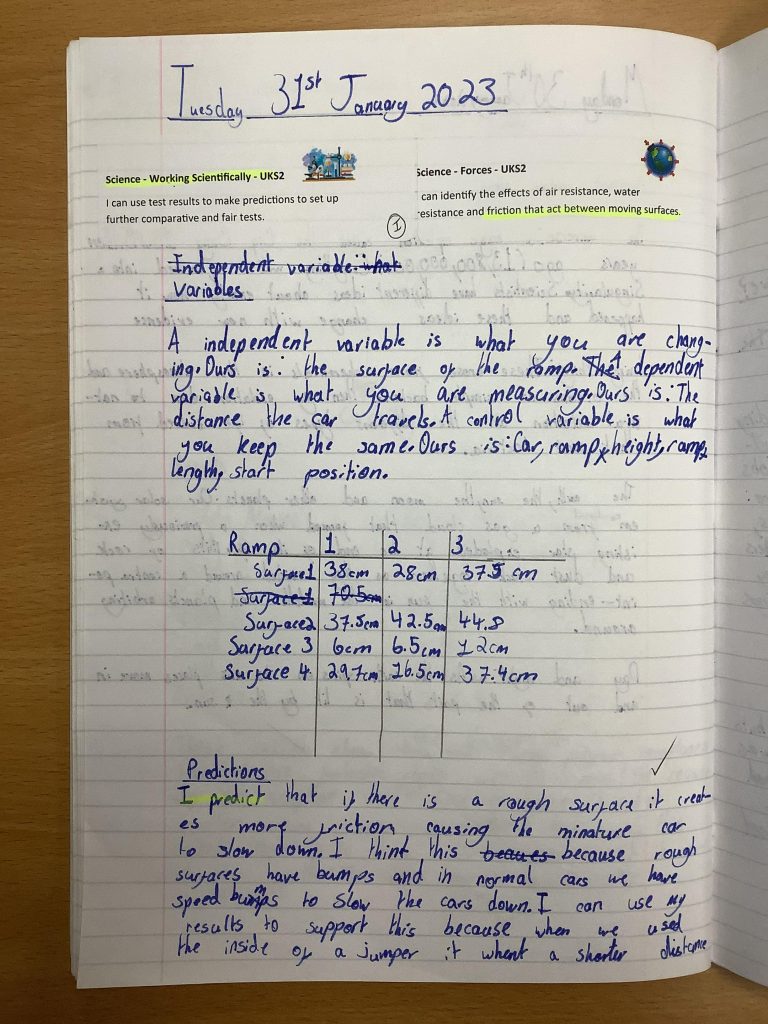 Tuesday 31st January 2023
Science - Working Scientifically - UKS2
I can use test results to make predictions to set up
further comparative and fair tests.
Science - Forces - UKS2
can identify the effects of air resistance, water
resistance and friction that act between moving surfaces.
I
Independent variable: what
Variables
A independent variable is what you are chang-
ing. Ours is: the surface of the ramp. The dependent
variable is what you are measuring. Ours is: The
distance the car travels. A control variable is what
you keep the same. Ours is: Car, ramp height, ramp
length, start position.
Ramp 1 2 3
Surface 1 38cm 28cm 37.5 cm
Surface 1 70.5cm
Surface 2 37.5cm 42.5cm 44.8
Surface 3 6cm 6.5cm 12cm
Surface 4 29.7cm 16.5cm 37.4cm
Predictions
I predict that if there is a rough surface it creat-
es more friction causing the minature car
to slow down. I think this beaues because rough
surfaces have bumps and in normal cars we have
speed bumps to slow the cars down. I can use my
results to support this because when we used
the inside of a jumper it whent a shorter distance